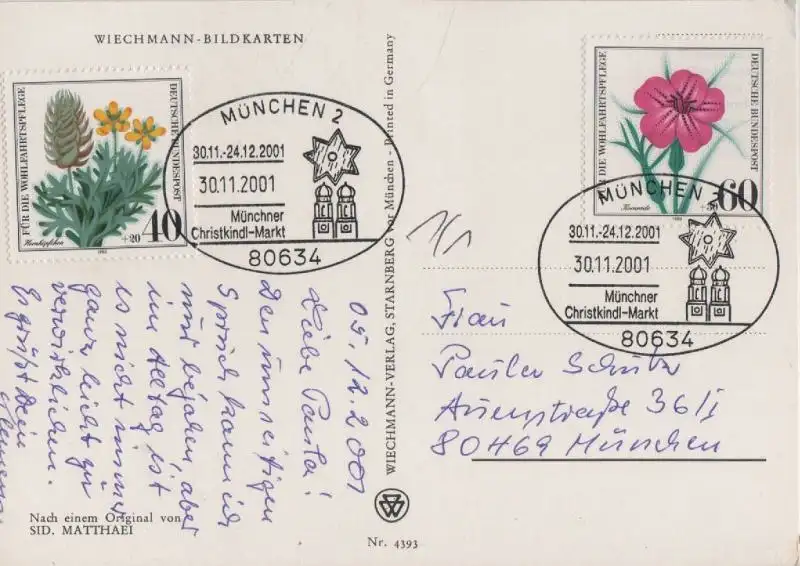 WIECHMANN-BILDKARTEN
FÜR DIE WOHLFAHRTSPFLEGE
DEUTSCHE BUNDESPOST
+20 40
Hornköpfchen
1980
MÜNCHEN 2
30.11.-24.12.2001
30.11.2001
Münchner
Christkindl-Markt
80634
FÜR DIE WOHLFAHRTSPFLEGE
DEUTSCHE BUNDESPOST
+30 60
Kornrade
1980
MÜNCHEN 2
30.11.-24.12.2001
30.11.2001
Münchner
Christkindl-Markt
80634
WIECHMANN-VERLAG, STARNBERG vor München - Printed in Germany
05.12.2001
Liebe Paula!
Den umseitigen
Spruch kann ich
nur bejahen, aber
im Alltag ist
es nicht immer
ganz leicht zu
verwirklichen.
Es grüßt Dein
Frau
Schulz
36/I
80469 München
Nach einem Original von
SID. MATTHAEI
Nr. 4393